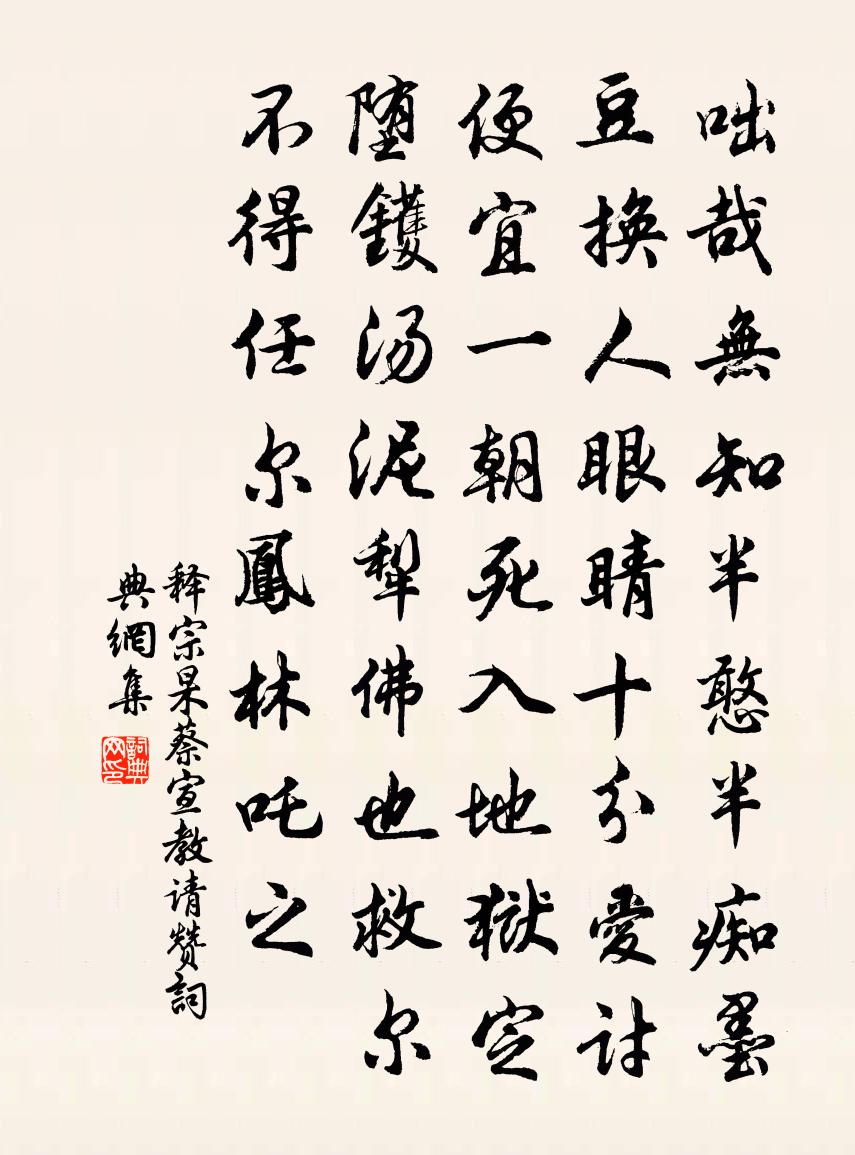 咄哉無知半憨半痴墨
豆換人眼睛十分愛討
便宜一朝死入地獄定
堕鑊汤泥犁佛也救尔
不得任尔鳳林吒之
释宗杲蔡宣教请赞詞
典網集
詞典网印